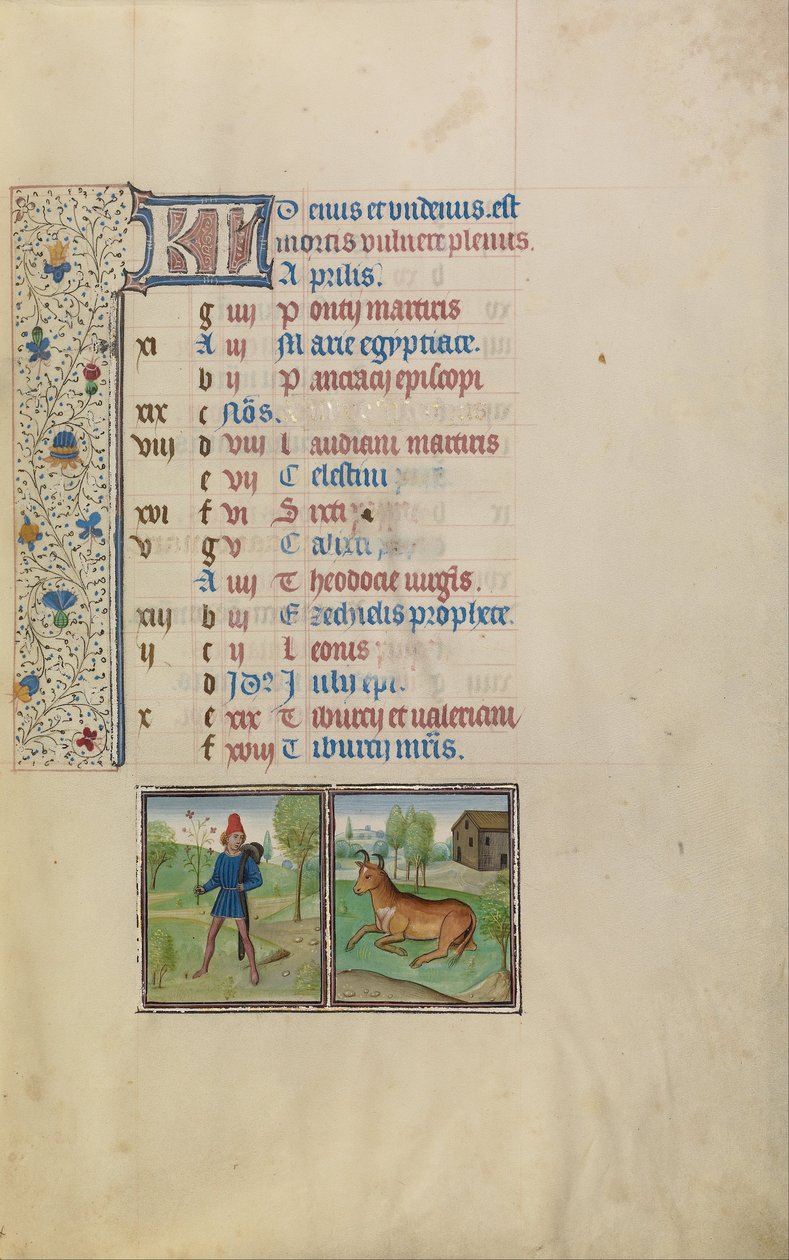 KL Denus et undenus. est
mortis vulnere plenus.
Aprilis.
g iiij Pontij martiris
xi A iij Marie egyptiace.
b ij Pancracij episcopi
xix c Nōs.
viij d viij Laudiani martiris
e vij Celestini
xvi f vi Sixti
v g v Calixti
A iiij Theodocie uirgīs.
xiij b iij Ezechielis prophete.
ij c ij Leonis
d Idꝰ Iulij epī.
x e xix Tiburcij et ualeriani
f xviij Tiburcij mr̄is.